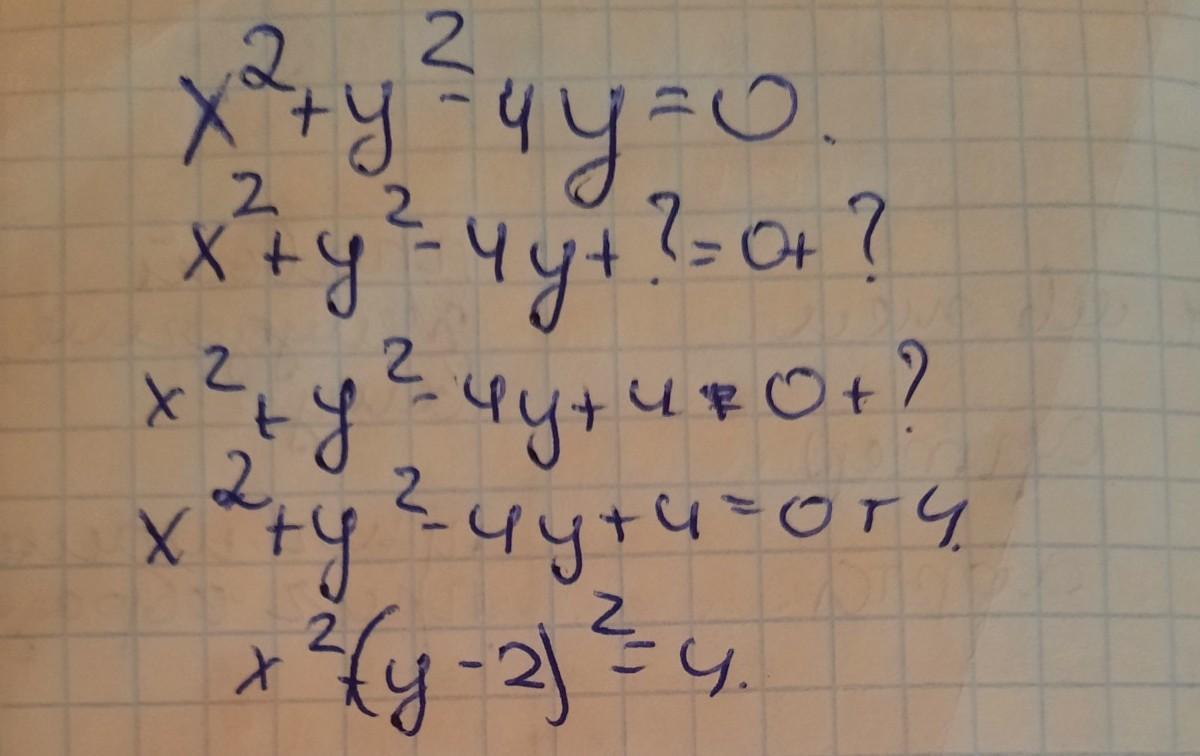 x²+y²-4y=0.
x²+y²-4y+?=0+?
x²+y²-4y+4=0+?
x²+y²-4y+4=0+4.
x²+(y-2)²=4.